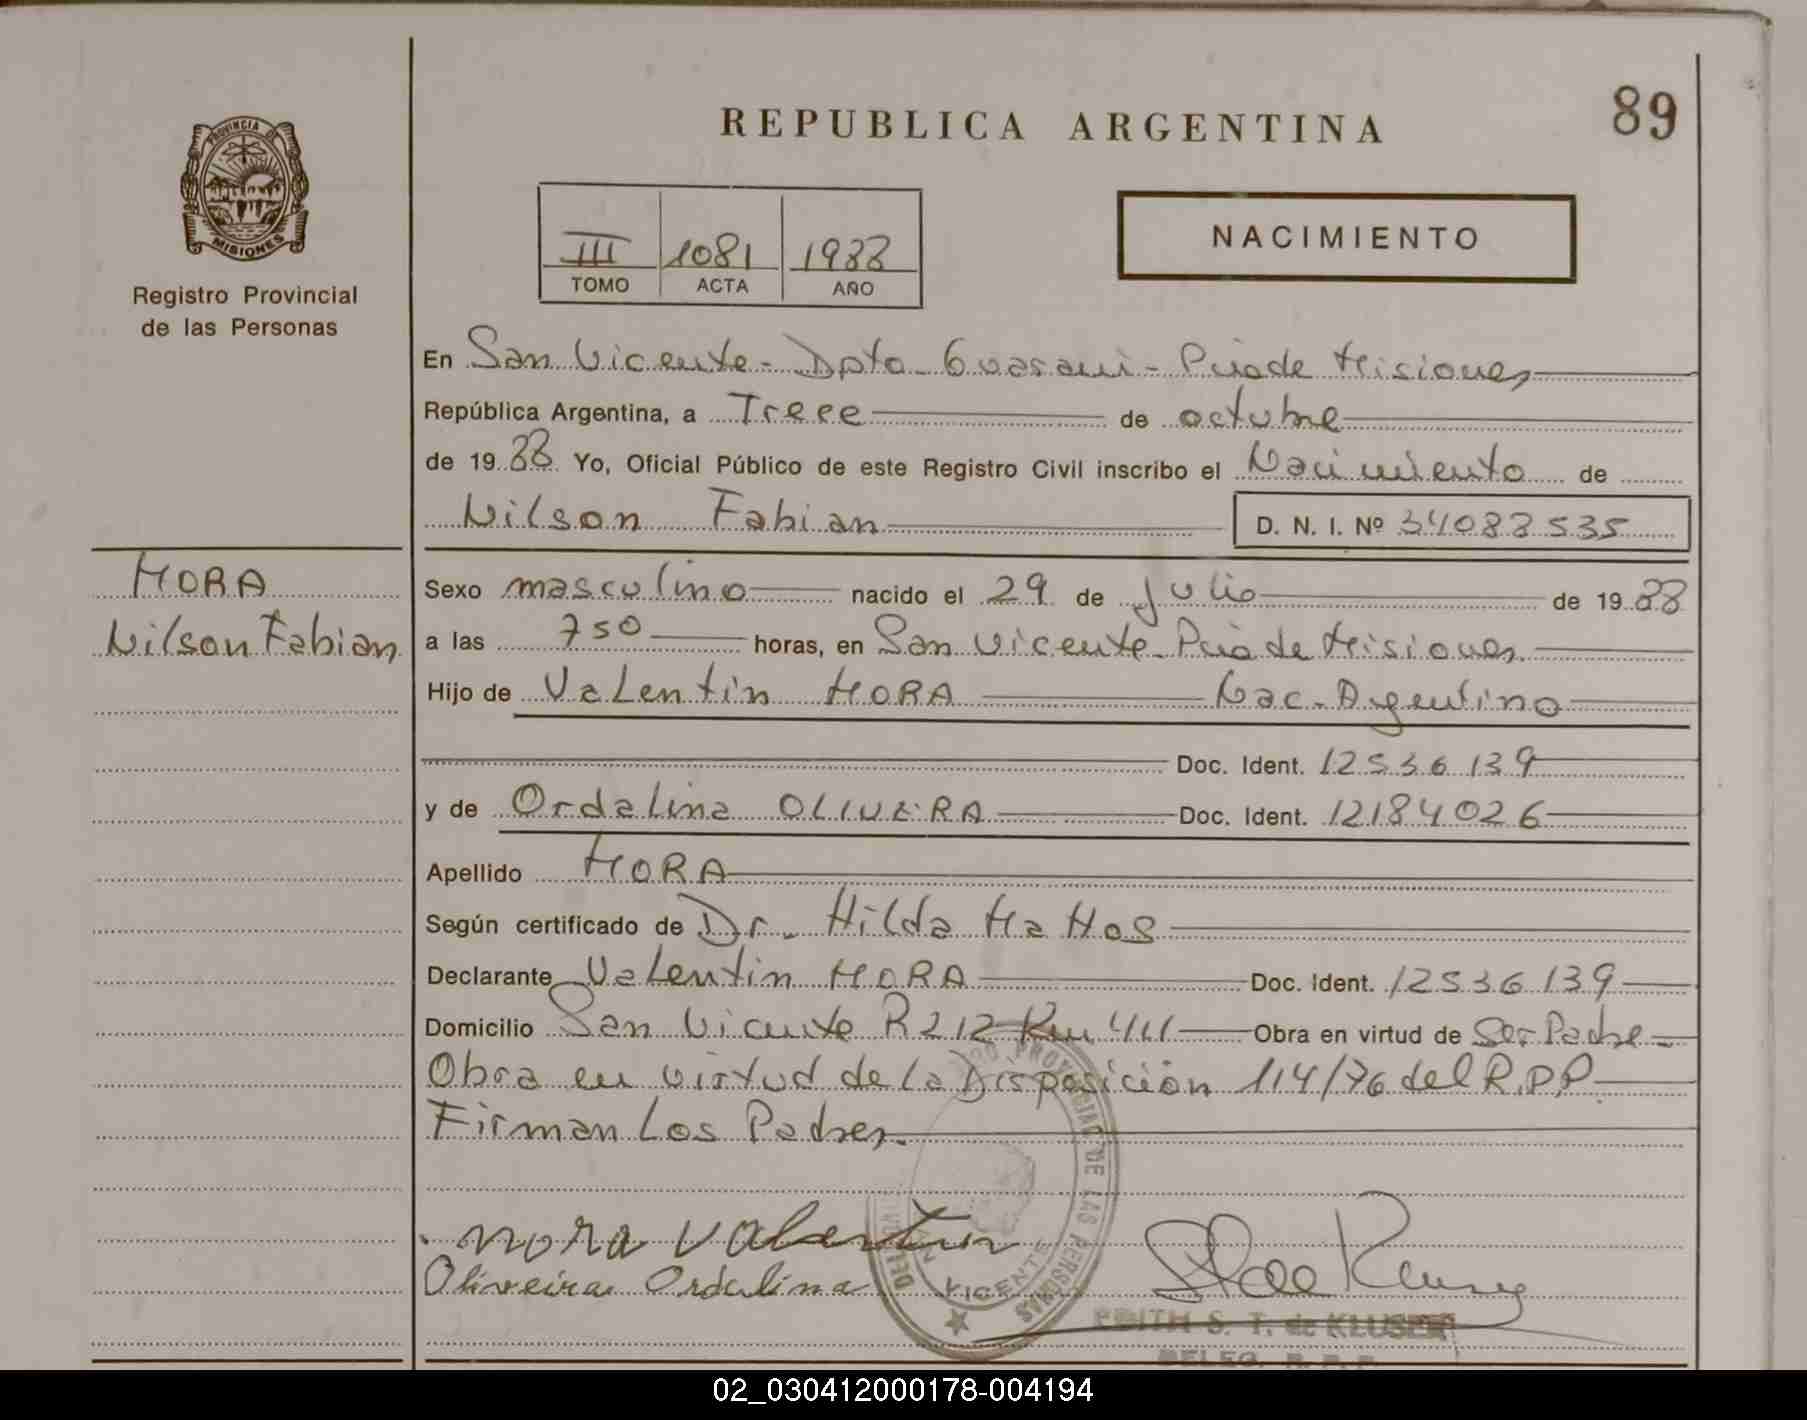 REPUBLICA ARGENTINA
89
PROVINCIA DE
MISIONES
Registro Provincial
de las Personas
III 1081 1988
TOMO ACTA AÑO
NACIMIENTO
En San Vicente - Dpto. Guarani - Pcia de Misiones
República Argentina, a Trece de octubre
de 1988 Yo, Oficial Público de este Registro Civil inscribo el Nacimiento de
Nilson Fabian D. N. I. Nº 34088535
MORA
Nilson Fabian
Sexo masculino nacido el 29 de Julio de 1988
a las 750 horas, en San Vicente - Pcia de Misiones
Hijo de Valentin MORA Nac. Argentino
Doc. Ident. 12536139
y de Ordalina OLIVEIRA Doc. Ident. 12184026
Apellido MORA
Según certificado de Dr. Hilda Mattos
Declarante Valentin MORA Doc. Ident. 12536139
Domicilio San Vicente R 212 Km Obra en virtud de Ser Padre
Obra en virtud de la Disposición 114/76 del R.P.P.
Firman Los Padres.
mora valentin
Oliveira Ordalina
PROVINCIAL DE LAS PERSONAS
VICENTE
EDITH S. T. de KLUSER
DELEG. R. P. P.
02_030412000178-004194